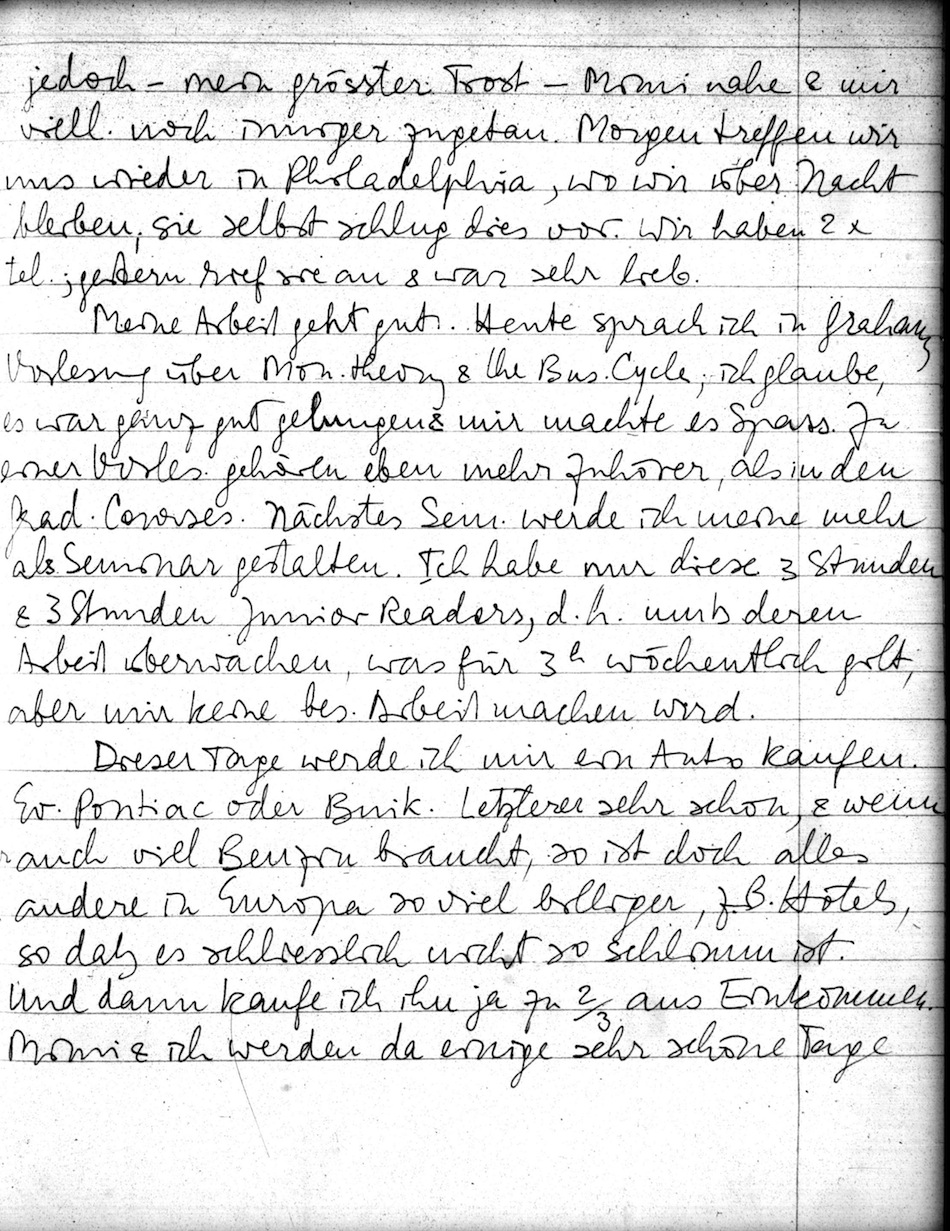 jedoch – mein grösster Trost – Mimi nahe & mir
viell. noch inniger zugetan. Morgen treffen wir
uns wieder in Philadelphia, wo wir über Nacht
bleiben; sie selbst schlug dies vor. Wir haben 2 x
tel.; gestern rief sie an & war sehr lieb.
Meine Arbeit geht gut. Heute sprach ich in Grahams
Vorlesung über Mon. theory & the Bus. Cycle; ich glaube,
es war ganz gut gelungen & mir machte es Spass. Zu
einer Vorles. gehören eben mehr Zuhörer, als in den
Grad. Courses. Nächstes Sem. werde ich meine mehr
als Seminar gestalten. Ich habe nur diese 3 Stunden
& 3 Stunden Junior Readers, d. h. muss deren
Arbeit überwachen, was für 3 h wöchentlich gilt,
aber mir keine bes. Arbeit machen wird.
Dieser Tage werde ich mir ein Auto kaufen.
Ev. Pontiac oder Buik. Letzterer sehr schön, & wenn
er auch viel Benzin braucht, so ist doch alles
andere in Europa so viel billiger, z. B. Hotels,
so daß es schliesslich nicht so schlimm ist.
Und dann kaufe ich ihn ja zu 2/3 aus Einkommen.
Mimi & ich werden da einige sehr schöne Tage